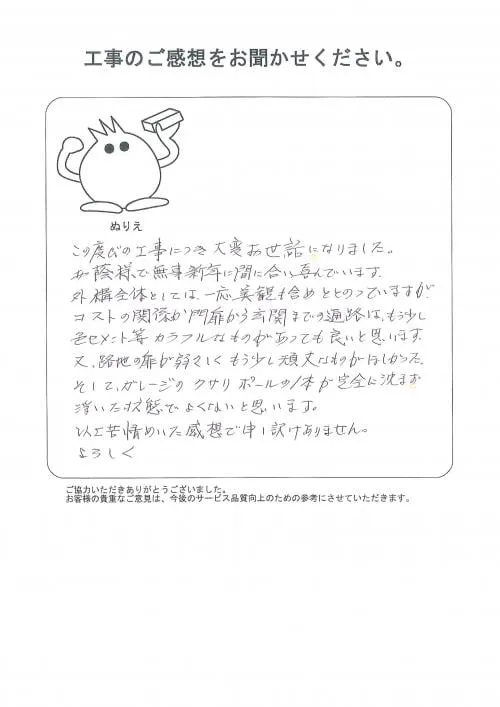 工事のご感想をお聞かせください。
ぬりえ
この度びの工事につき大変お世話になりました。
お蔭様で無事新年に間に合い喜んでいます。
外構全体としては、一応美観も含めととのっていますが、
コストの関係か門扉から玄関までの通路は、もう少し
色セメント等カラフルなものがあっても良いと思います。
又、路地の扉が弱々しくもう少し頑丈なものがほしかった。
そして、ガレージのクサリポールの1本が完全に沈まず
浮いた状態でよくないと思います。
以上苦情めいた感想で申し訳けありません。
よろしく
ご協力いただきありがとうございました。
お客様の貴重なご意見は、今後のサービス品質向上のための参考にさせていただきます。